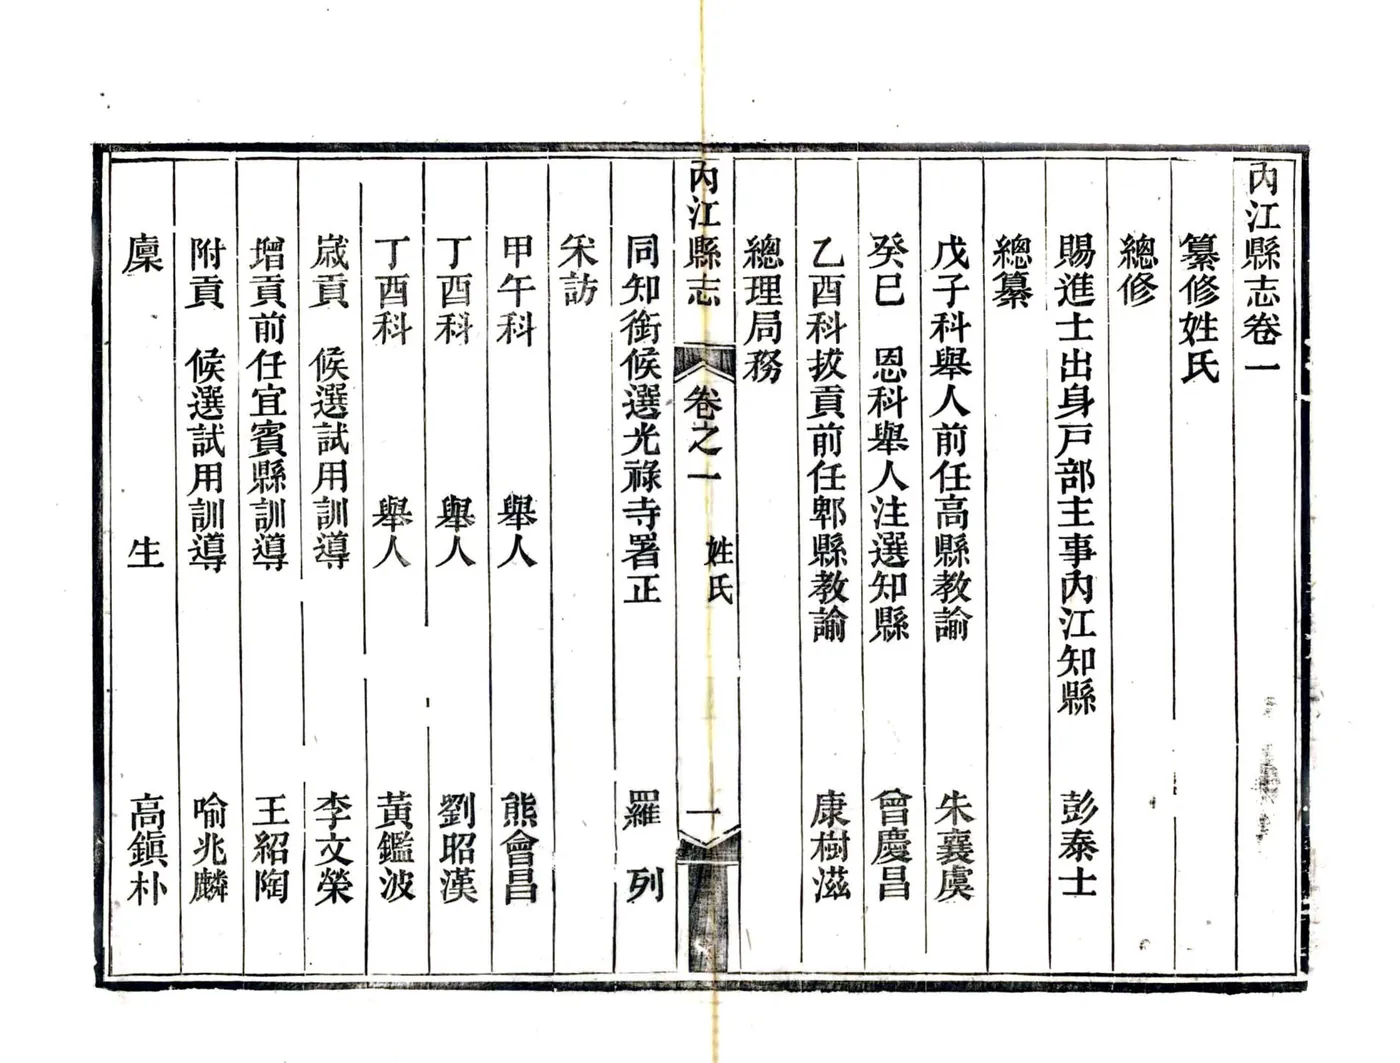 內江縣志卷一
纂修姓氏
總修
賜進士出身戸部主事內江知縣 彭泰士
總纂
戊子科舉人前任高縣教諭 朱襄虞
癸巳 恩科舉人注選知縣 曾慶昌
乙酉科拔貢前任郫縣教諭 康樹滋
總理局務
內江縣志 卷之一 姓氏 一
同知銜候選光祿寺署正 羅 列
采訪
甲午科 舉人 熊會昌
丁酉科 舉人 劉昭漢
丁酉科 舉人 黃鑑波
歲貢 候選試用訓導 李文榮
增貢前任宜賓縣訓導 王紹陶
附貢 候選試用訓導 喻兆麟
廩 生 高鎭朴